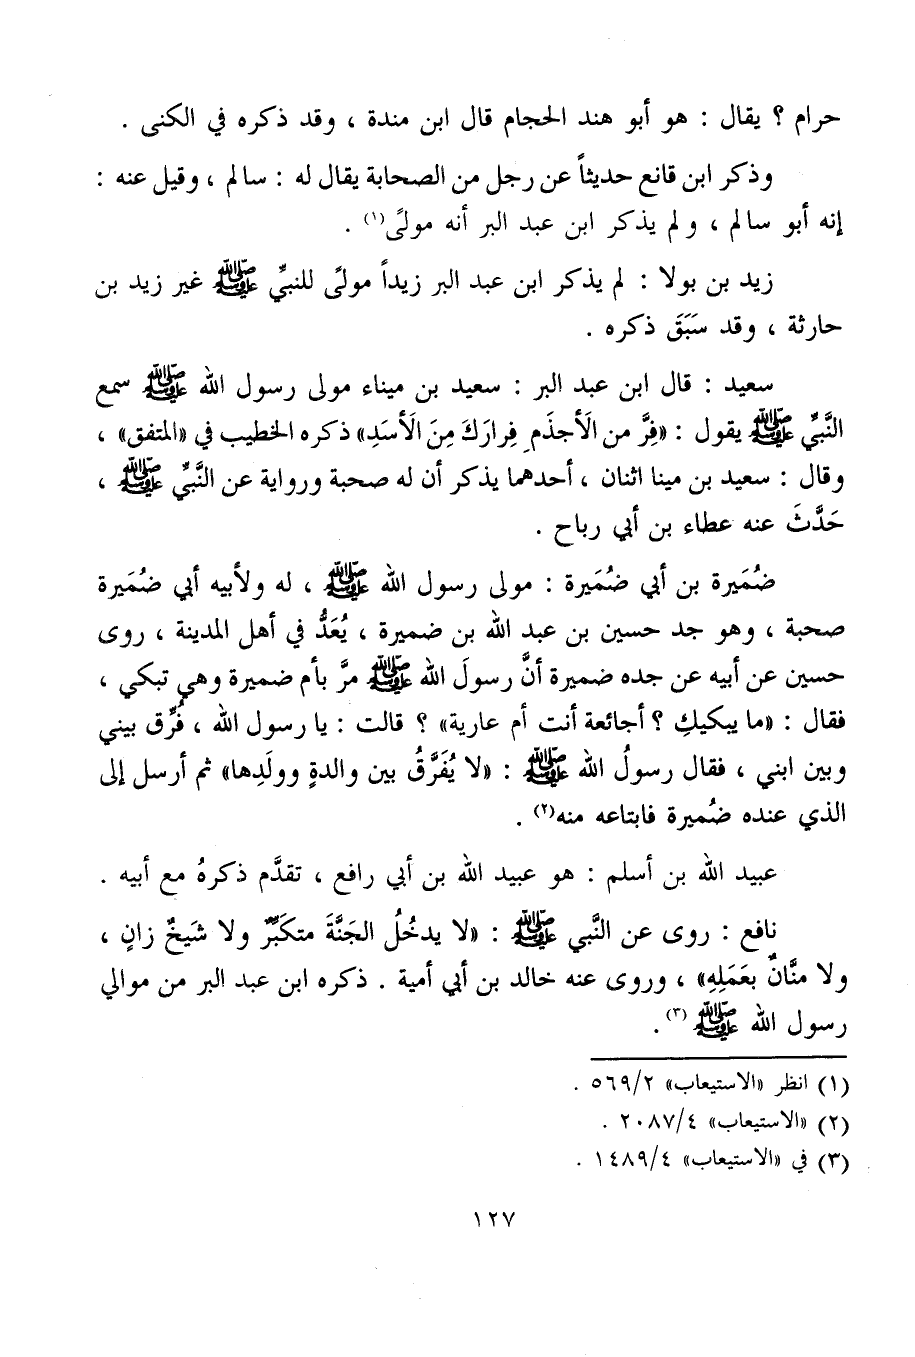 حرام ؟ يقال : هو أبو هند الحجام قال ابن مندة ، وقد ذكره في الكنى .
وذكر ابن قانع حديثاً عن رجل من الصحابة يقال له : سالم ، وقيل عنه :
إنه أبو سالم ، ولم يذكر ابن عبد البر أنه مولىً(١) .
زيد بن بولا : لم يذكر ابن عبد البر زيداً مولىً للنبيِّ ﷺ غير زيد بن
حارثة ، وقد سَبَقَ ذكره .
سعيد : قال ابن عبد البر : سعيد بن ميناء مولى رسول الله ﷺ سمع
النَّبيِّ ﷺ يقول : «فِرَّ من الَأجذَمِ فِرارَكَ مِنَ الَأسَدِ» ذكره الخطيب في «المتفق» ،
وقال : سعيد بن مينا اثنان ، أحدهما يذكر أن له صحبة ورواية عن النَّبيِّ ﷺ ،
حَدَّثَ عنه عطاء بن أبي رباح .
ضُمَيرة بن أبي ضُمَيرة : مولى رسول الله ﷺ ، له ولأبيه أبي ضُمَيرة
صحبة ، وهو جد حسين بن عبد الله بن ضميرة ، يُعَدُّ في أهل المدينة ، روى
حسين عن أبيه عن جده ضميرة أنَّ رسولَ الله ﷺ مرَّ بأم ضميرة وهي تبكي ،
فقال : «ما يبكيكِ ؟ أجائعة أنت أم عارية» ؟ قالت : يا رسول الله ، فُرِّق بيني
وبين ابني ، فقال رسولُ الله ﷺ : «لا يُفَرَّقُ بين والدةٍ وولَدِها» ثم أرسل إلى
الذي عنده ضُميرة فابتاعه منه(٢) .
عبيد الله بن أسلم : هو عبيد الله بن أبي رافع ، تقدَّم ذكرهُ مع أبيه .
نافع : روى عن النَّبي ﷺ : «لا يدخُلُ الجَنَّةَ متكَبِّرٌ ولا شَيخٌ زانٍ ،
ولا منَّانٌ بعَمَلِهِ» ، وروى عنه خالد بن أبي أمية . ذكره ابن عبد البر من موالي
رسول الله ﷺ (٣).
(١) انظر «الاستيعاب» ٥٦٩/٢ .
(٢) «الاستيعاب» ٢٠٨٧/٤ .
(٣) في «الاستيعاب» ١٤٨٩/٤ .
١٢٧